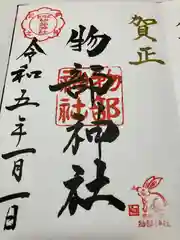 賀正
物部神社
物部
神社
令和五年一月一日